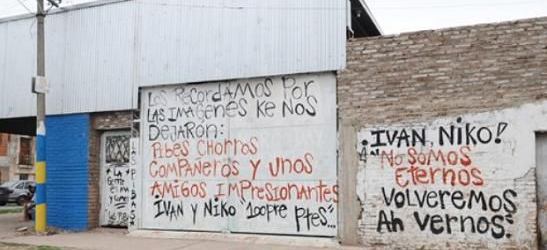 Los Recordamos Por
Las imágenes ke nos
Dejaron:
Pibes chorros
Compañeros y unos
Amigos impresionantes
Ivan y Niko "100pre ptes..."
¡IVAN, NIKO!
"No somos
Eternos
Volveremos
Ah vernos"
LAS
PIBAS
LA